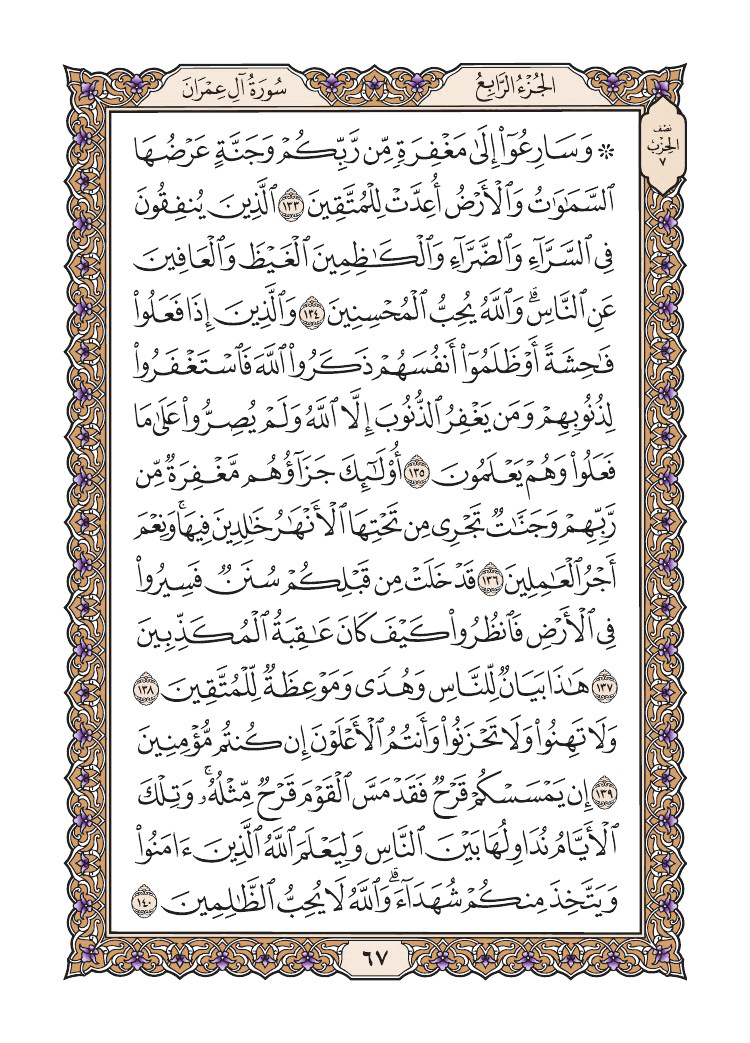 سُورَةُ آلِ عِمْرَانَ
الجُزْءُ الرَّابِعُ
نصف
الحِزْب
٧
۞ وَسَارِعُوٓاْ إِلَىٰ مَغْفِرَةٍ مِّن رَّبِّكُمْ وَجَنَّةٍ عَرْضُهَا
ٱلسَّمَٰوَٰتُ وَٱلْأَرْضُ أُعِدَّتْ لِلْمُتَّقِينَ ١٣٣ ٱلَّذِينَ يُنفِقُونَ
فِى ٱلسَّرَّآءِ وَٱلضَّرَّآءِ وَٱلْكَٰظِمِينَ ٱلْغَيْظَ وَٱلْعَافِينَ
عَنِ ٱلنَّاسِۗ وَٱللَّهُ يُحِبُّ ٱلْمُحْسِنِينَ ١٣٤ وَٱلَّذِينَ إِذَا فَعَلُواْ
فَٰحِشَةً أَوْ ظَلَمُوٓاْ أَنفُسَهُمْ ذَكَرُواْ ٱللَّهَ فَٱسْتَغْفَرُواْ
لِذُنُوبِهِمْ وَمَن يَغْفِرُ ٱلذُّنُوبَ إِلَّا ٱللَّهُ وَلَمْ يُصِرُّواْ عَلَىٰ مَا
فَعَلُواْ وَهُمْ يَعْلَمُونَ ١٣٥ أُوْلَٰٓئِكَ جَزَآؤُهُم مَّغْفِرَةٌ مِّن
رَّبِّهِمْ وَجَنَّٰتٌ تَجْرِى مِن تَحْتِهَا ٱلْأَنْهَٰرُ خَٰلِدِينَ فِيهَاۚ وَنِعْمَ
أَجْرُ ٱلْعَٰمِلِينَ ١٣٦ قَدْ خَلَتْ مِن قَبْلِكُمْ سُنَنٌ فَسِيرُواْ
فِى ٱلْأَرْضِ فَٱنظُرُواْ كَيْفَ كَانَ عَٰقِبَةُ ٱلْمُكَذِّبِينَ
١٣٧ هَٰذَا بَيَانٌ لِّلنَّاسِ وَهُدًى وَمَوْعِظَةٌ لِّلْمُتَّقِينَ ١٣٨
وَلَا تَهِنُواْ وَلَا تَحْزَنُواْ وَأَنتُمُ ٱلْأَعْلَوْنَ إِن كُنتُم مُّؤْمِنِينَ
١٣٩ إِن يَمْسَسْكُمْ قَرْحٌ فَقَدْ مَسَّ ٱلْقَوْمَ قَرْحٌ مِّثْلُهُۥۚ وَتِلْكَ
ٱلْأَيَّامُ نُدَاوِلُهَا بَيْنَ ٱلنَّاسِ وَلِيَعْلَمَ ٱللَّهُ ٱلَّذِينَ ءَامَنُواْ
وَيَتَّخِذَ مِنكُمْ شُهَدَآءَۗ وَٱللَّهُ لَا يُحِبُّ ٱلظَّٰلِمِينَ ١٤٠
٦٧